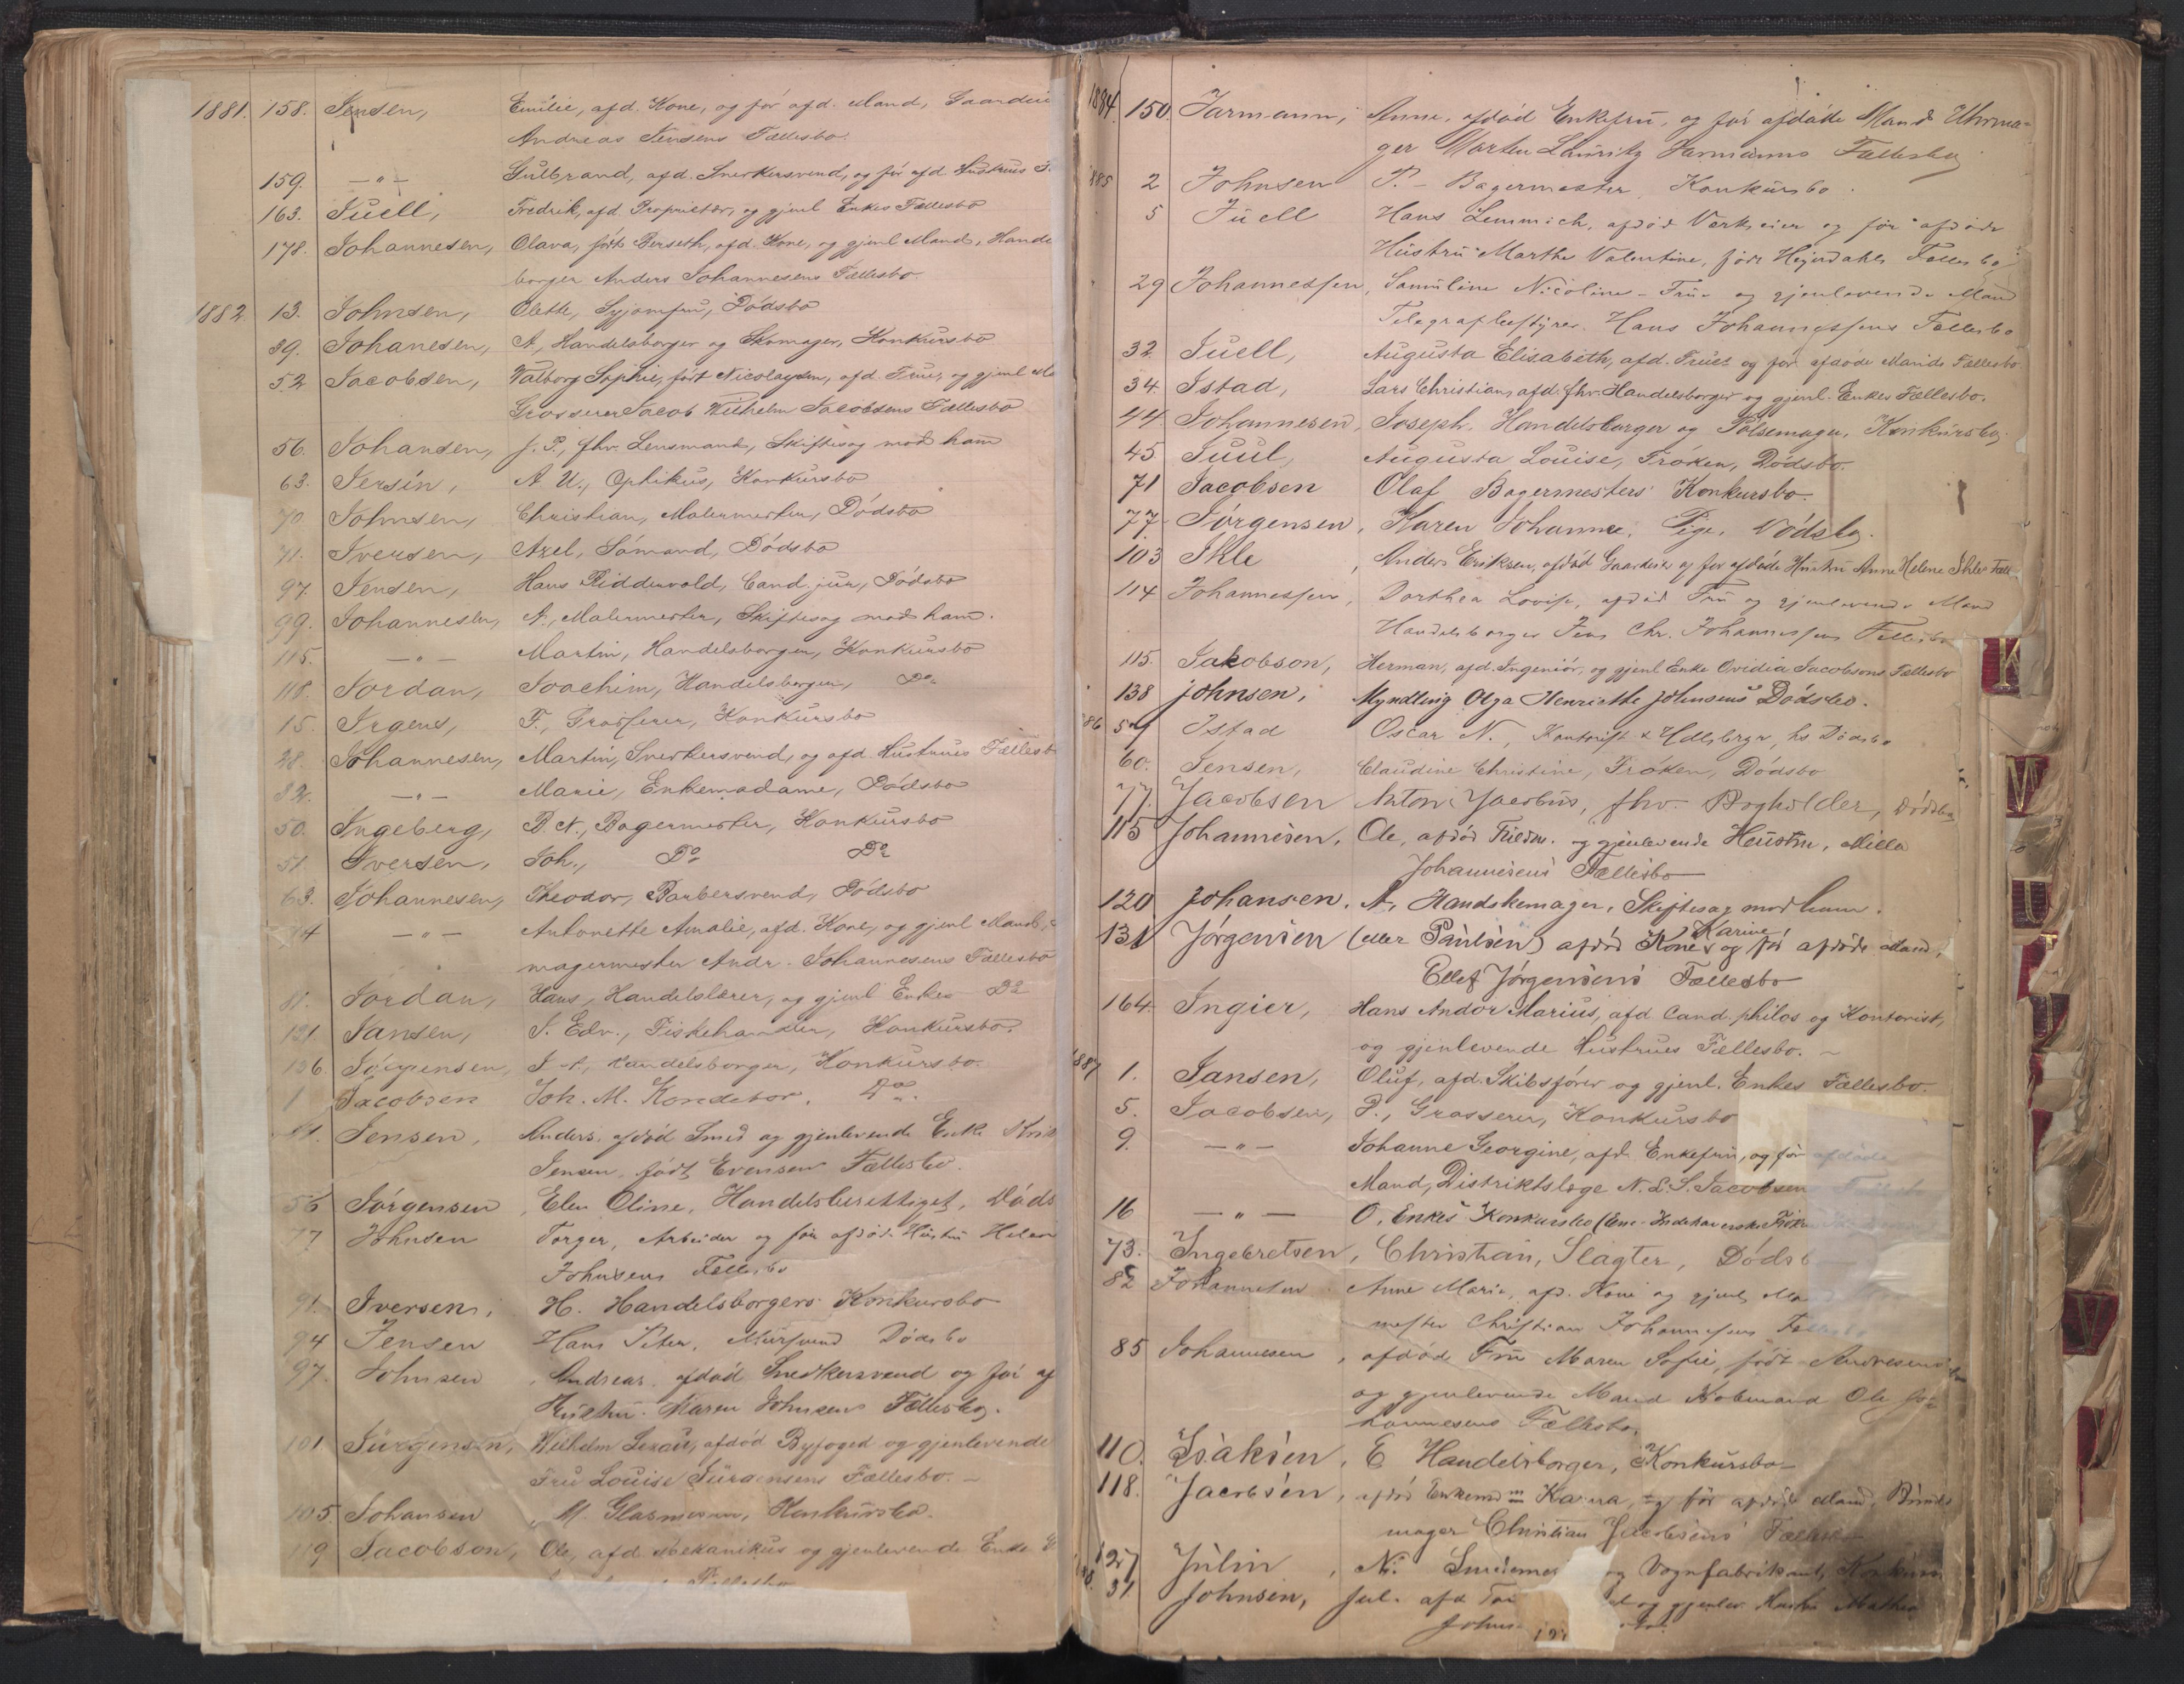 1881. 158. Jensen, Emilie, afd. Kone, og for afd. Mand, Gaardei
Andreas Jensens Fællesbo.
159. — " — Gulbrand, afd. Snerkersvend, og for afd Hustrues F.
163. Juell, Fredrik, afd. Proprietær, og gjenl Enkes Fællesbo
178. Johannesen, Olava, født Berseth, afd. Kone, og gjenl Mand, Hande
borger Anders Johannesens Fællesbo.
1882. 13. Johnsen, Olette, Syjomfru, Dødsbo
39. Johanesen, A., Handelsborger og Skomager, Konkursbo
52 Jacobsen, Valborg Sophie, født Nicolaysen, afd. Frue, og gjenl Ma
Grosserer Jacob Wilhelm Jacobsens Fællesbo
56. Johansen, J. P., fhv. Lensmand, Skiftesag mod ham
63. Jersin, A. U., Optikus, Konkursbo
70 Johnsen, Christian, Malermester, Dødsbo
71. Iversen, Axel, Sømand, Dødsbo
97. Jensen, Hans Riddervold, Cand. jur., Dødsbo
99. Johannesen, A., Malermester, Skiftesag mod ham.
115. — " — Martin, Handelsborger, Konkursbo
118. Jordan, Joachim, Handelsborger, Do
15. Irgens, F., Grosserer, Konkursbo
28. Johannesen, Martin, Snerkersvend, og afd. Hustrues Fællesb
32. — " — Marie, Enkemadame, Dødsbo
50. Ingeberg, B. A., Bagermester, Konkursbo
51. Iversen, Joh., Do Do
63. Johannesen, Theodor, Barbersvend, Dødsbo
74 — " — Antonette Amalie, afd. Kone, og gjenl Mand,
magermester Andr. Johannesens Fællesbo
81. Jordan, Hans, Handelslærer, og gjenl Enkes Do
121. Jansen, S. Edv., Fiskehandler, Konkursbo.
136. Jørgensen, J. A., Handelsborger, Konkursbo.
1 Jacobsen Joh. M. Konditor. Do.
Jensen, Anders, afdød Smed og gjenlevende Enke
Jensen, født Evensen Fællesbo.
56 Jørgensen, Elen Oline, Handelsberettiget, Døds
77 Johnsen Torger, Arbeider og for afdøde Hustru Helene
Johnsens Fællesbo
91. Iversen, H. Handelsborgers Konkursbo
94 Jensen Hans Peter, Mursvend Dødsbo
97. Johnsen, Andreas, afdød Snedkersvend og for af
Hustru. Maren Johnsens Fællesbo.
101. Jürgensen, Wilhelm Lexau, afdød Byfoged og gjenlevende
Fru Louise Jürgensens Fællesbo. —
105. Johansen, M. Glasmester, Konkursbo.
119 Jacobson, Ole, afd. Mekanikus og gjenlevende Enke
1884. 150. Jarmann, Anna, afdød Enkefru, og for afdøde Mand Uhrma-
ger Morten Lauritz Jarmanns Fællesbo
1885 2 Johnsen P. — Bagermester Konkursbo.
5 Juell Hans Lemmich, afdød Værkseier og for afdøde
Hustru Marthe Valentine, født Heyerdahls Fællesbo
29 Johannessen, Samiline Nicoline — Frue og gjenlevende Mand
Telegrafbestyrer Hans Johannessens Fællesbo
32. Juell, Augusta Elisabeth, afd. Frues og for afdøde Mands Fællesbo
34. Istad, Lars Christian, afd. fhv. Handelsborger og gjenl. Enkes Fællesbo.
44. Johannesen, Joseph. Handelsborger og Pølsemager, Konkursbo.
45 Juul, Augusta Louise, Frøken, Dødsbo.
71 Jacobsen Olaf Bagermesters Konkursbo.
77. Jørgensen, Karen Johanne, Pige, Dødsbo.
103 Ihle, Anders Eriksen, afdød Gaardeier og for afdøde Hustru Anne Helene Ihles Fæll
114 Johannessen, Dorthea Lovise, afdød Fru og gjenlevende Mand
Handelsborger Jens Chr. Johannessens Fællesbo
115. Jakobson, Herman, afd. Ingeniør, og gjenl Enke Ovidia Jacobsons Fællesbo
138 Johnsen, Myndling Olga Henriette Johnsens Dødsbo.
86 59 Istad Oscar N., Kontorist & Hdlsbrgr, hs Dødsbo
60. Jensen, Claudine Christine, Frøken, Dødsbo
77. Jacobsen Anton Jacobus, fhv. Bogholder, Dødsbo
115 Johannesen, Ole, afdød Fuldm. og gjenlevende Hustru, Milla
Johannesens Fællesbo
120 Johansen. A, Handskemager, Skiftesag mod ham.
131 Jørgensen (eller Paulsen) afdød Kone Karine og for afdøde Mand,
Ellef Jørgensens Fællesbo
164. Ingier, Hans Andor Marius, afd Cand. philos og Kontorist,
og gjenlevende Hustrues Fællesbo. —
1887 1. Jansen, Oluf, afd. Skibsfører og gjenl. Enkes Fællesbo.
5. Jacobsen, P., Grosserer, Konkursbo
9. — " — Johanne Georgine, afd. Enkefru, og for afdøde
Mand, Distriktslæge N. L. S. Jacobsen
16 — " — O. Enkes Konkursbo (Ene-Indehaverske Frøken
73. Ingebretsen, Christian, Slagter, Dødsb
82 Johannesen Anne Marie, afd. Kone og gjenl. Ma
mester Christian Johannesens Fællesbo
85 Johannesen, afdøde Fru Maren Sofie, født Andresen
og gjenlevende Mand Kobmand Ole Jo-
hannesens Fællesbo.
110. Isaksen, E Handelsborger, Konkursbo
118. Jacobsen, afdød Enkemadm Karna, og for afdøde Mand, Bundt
mager Christian Jacobsens Fællesb
127 Julin, N. Smedemes og Vognfabrikant, Konkurs
31 Johnsen, Jul. afd. og gjenlev. Hustru Mathea
Johns
K
M
V